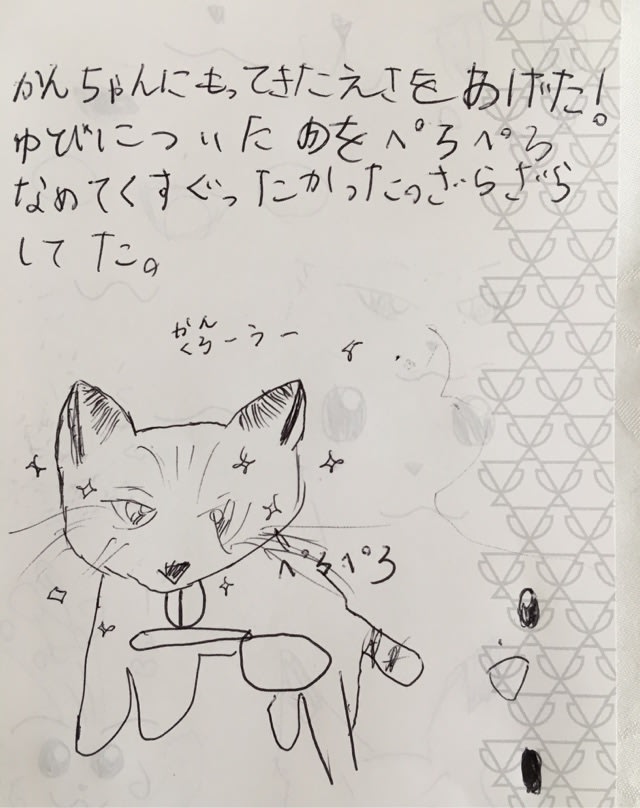 かんちゃんにもってきたえさをあげた!
ゆびについた のをペろペろ
なめてくすぐったかった。ざらざら
してた。
かん
くろーうー
ペろペろ